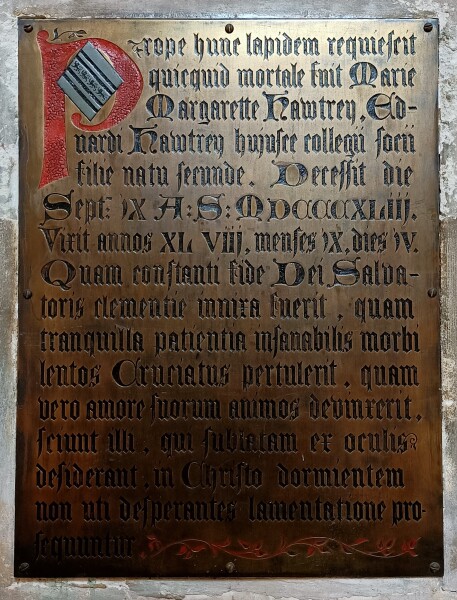 Prope hunc lapidem requiescit
quicquid mortale fuit Marie
Margarette Hawtrey, Ed-
uardi Hawtrey hujusce collegii socii
filie natu secunde. Decessit die
Sept: IX A: S: MDCCCXLIII.
Vixit annos XL VIII, menses IX, dies IV.
Quam constanti fide Dei Salva-
toris clementie innixa fuerit, quam
tranquilla patientia insanabilis morbi
lentos Cruciatus pertulerit, quam
vero amore suorum animos devinxerit,
sciunt illi, qui sublatam ex oculis
desiderant, in Christo dormientem
non uti desperantes lamentatione pro-
sequuntur